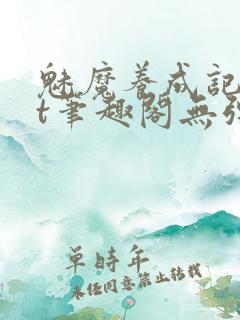 魅魔养成记
t筆趣閣無弹
單時年
未经同意禁止转载